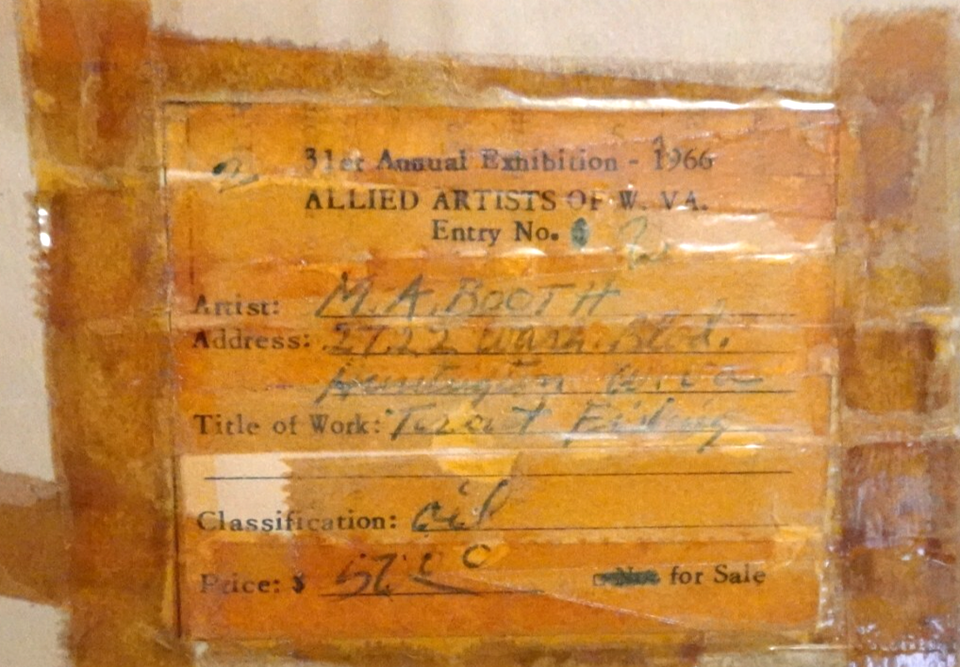 2
31st Annual Exhibition - 1966
ALLIED ARTISTS OF W. VA.
Entry No.
Artist: M. A. BOOTH
Address: 2722 Wash. Blvd.
Huntington W. Va
Title of Work: Trout Fishing
Classification: oil
Price: $ 57.00 for Sale